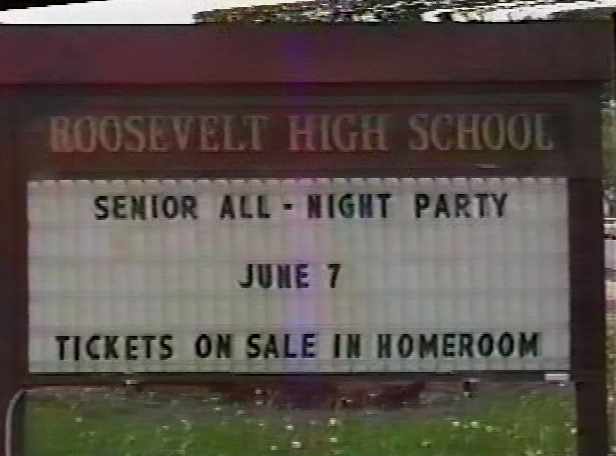 ROOSEVELT HIGH SCHOOL
SENIOR ALL - NIGHT PARTY
JUNE 7
TICKETS ON SALE IN HOMEROOM